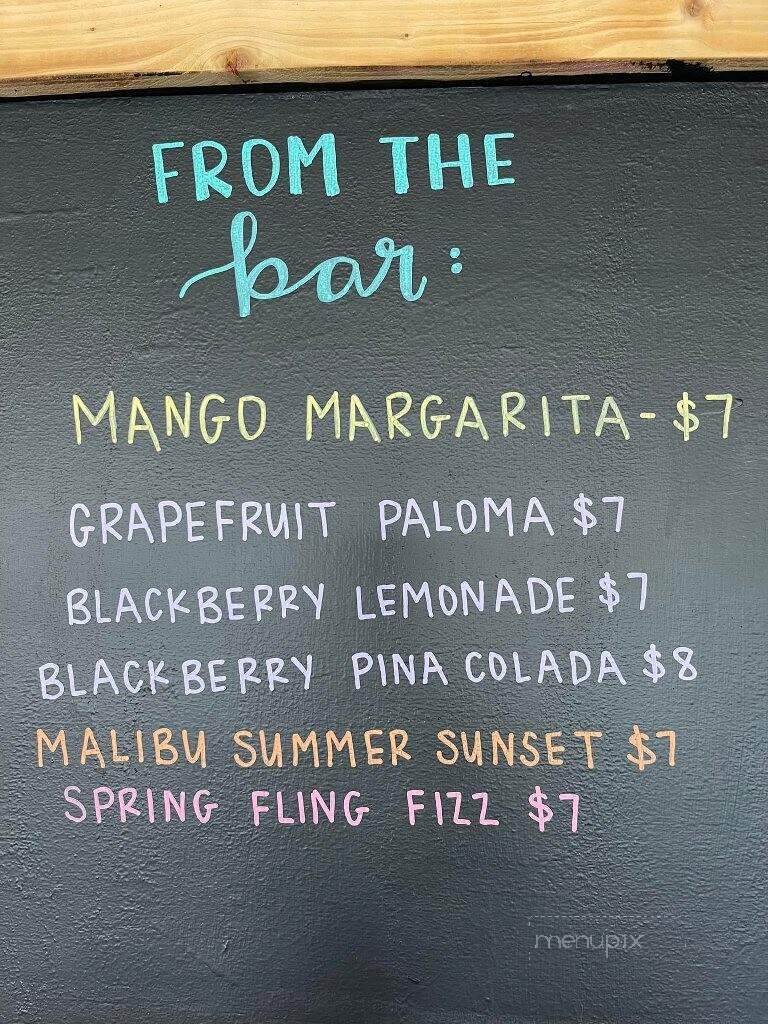 FROM THE
bar:
MANGO MARGARITA - $7
GRAPEFRUIT PALOMA $7
BLACKBERRY LEMONADE $7
BLACKBERRY PINA COLADA $8
MALIBU SUMMER SUNSET $7
SPRING FLING FIZZ $7
menupix